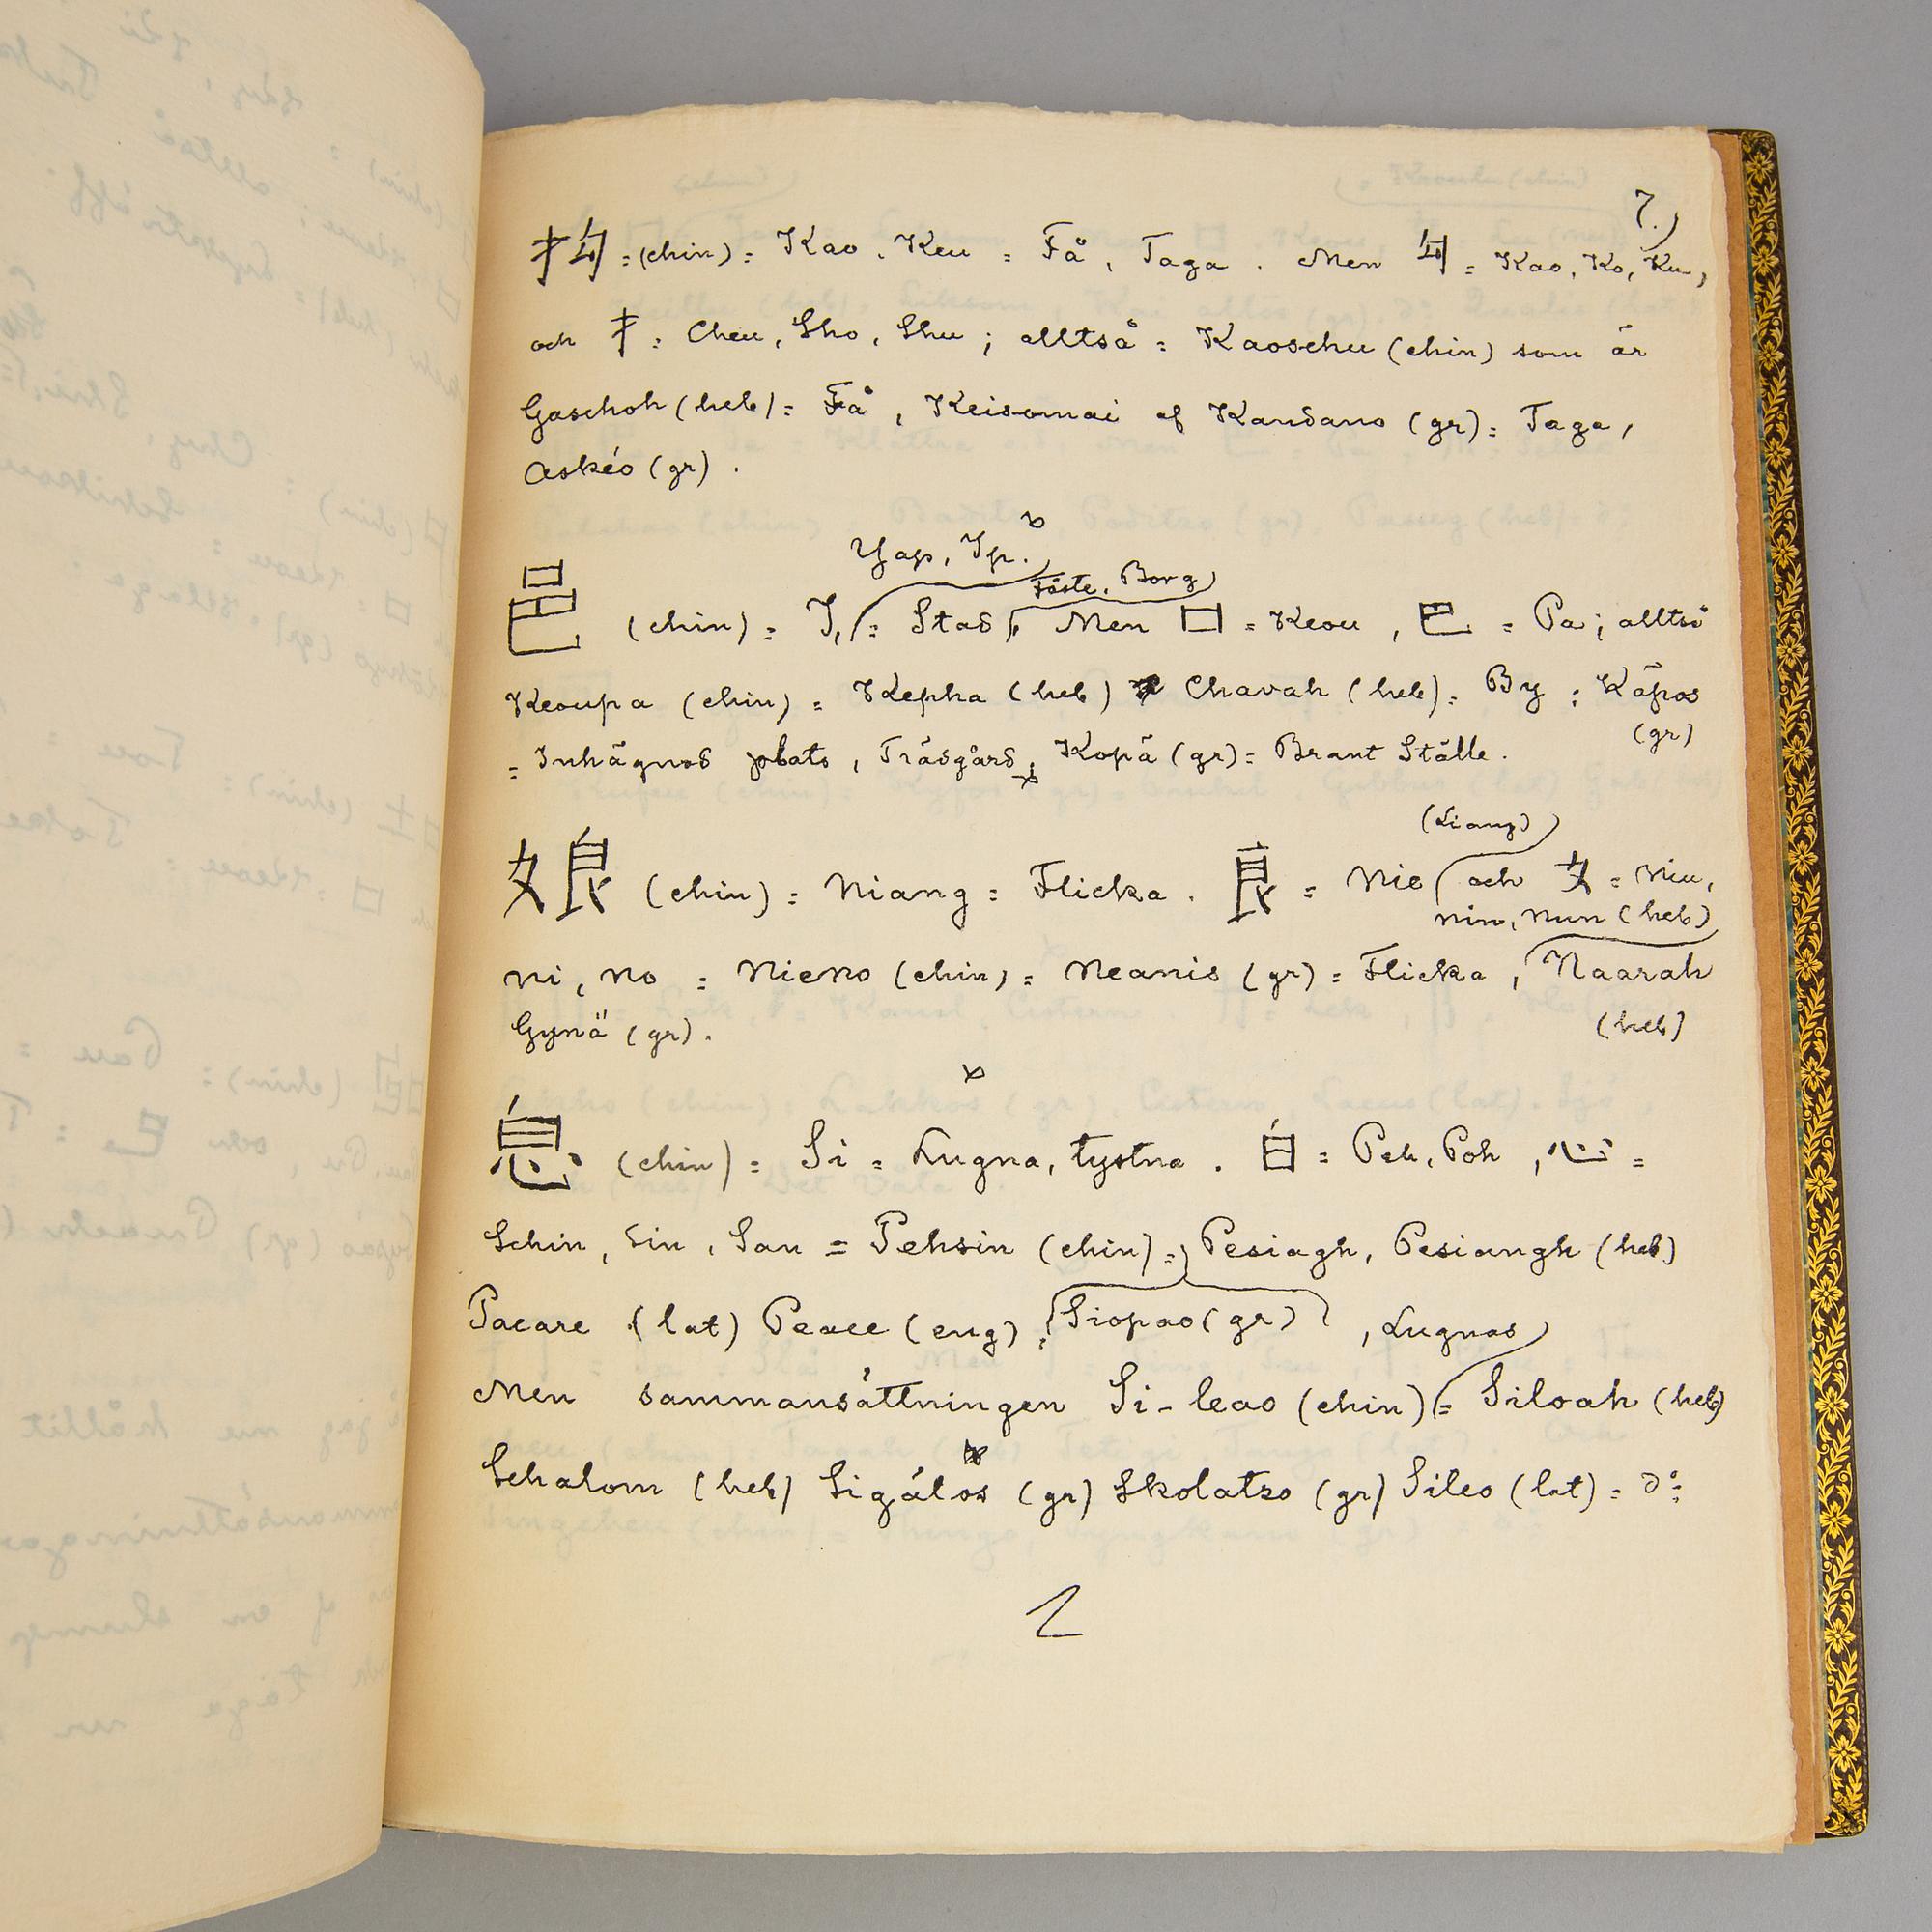 7.)
= (chin) = Kao, Keu = Få, Taga. Men = Kao, Ko, Ku,
och 扌 = Cheu, Sho, Shu; alltså = Kaoschu (chin) som är
Gaschoh (heb) = Få, Keisomai af Kandano (gr) = Taga,
Askéo (gr).
Yap, Ip.
Fäste, Borg
邑 (chin) = I, = Stad, Men 口 = Keou, 巴 = Pa; alltså
Keoupa (chin) = Kepha (heb) Chavah (heb) = By; Käpos
(gr)
= Inhägnad plats, Trädgård, Kopä (gr) = Brant Ställe.
(Liang)
娘 (chin) = Niang = Flicka. 良 = Nie och 女 = Niu,
nin, nun (heb)
ni, no = Nieno (chin) = Neanis (gr) = Flicka, Naarah
Gynä (gr).
(heb)
息 (chin) = Si = Lugna, tystna. 白 = Peh, Poh, 心 =
Schin, Sin, San = Pehsin (chin) = Pesiagh, Pesiangh (heb)
Pacare (lat) Peace (eng), Siopao (gr), Lugnas
Men sammansättningen Si-leao (chin) = Siloah (heb)
Schalom (heb) Sigálos (gr) Skolatso (gr) Sileo (lat) = d:o